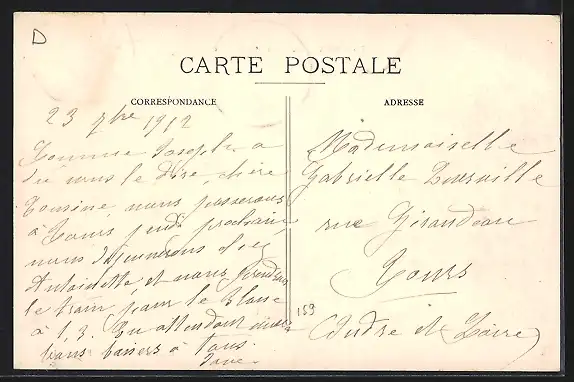 D
CARTE POSTALE
CORRESPONDANCE
ADRESSE
23 7bre 1912
Comme Joseph a
dû vous le dire, chère
Cousine, nous passerons
à Tours jeudi prochain
nous déjeunerons chez
Antoinette et nous prendrons
le train pour le Blanc
à 1,3. En attendant
bons baisers à tous.
Mademoiselle
Gabrielle
rue Girandeau
Tours
159
(Indre et Loire)